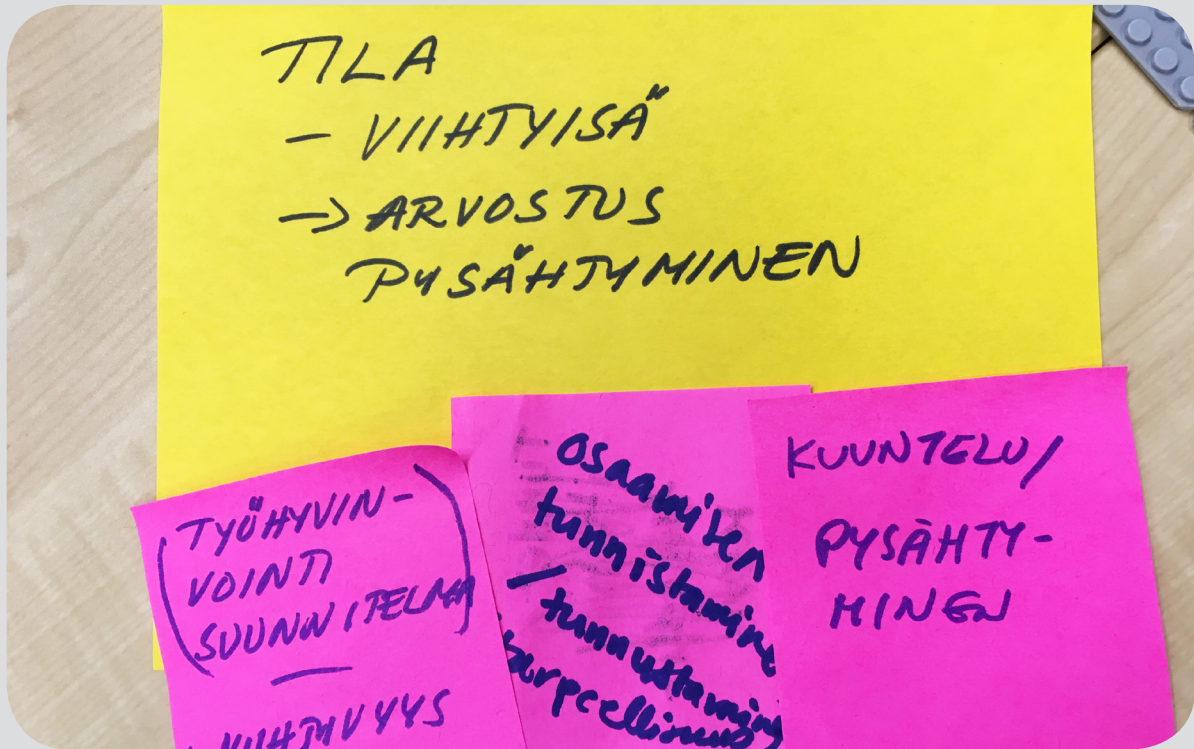 TILA
- VIIHTYISÄ
-> ARVOSTUS
PYSÄHTYMINEN
(TYÖHYVIN-
VOINTI
SUUNNITELMA)
—
VIIHTYVYYS
osaamisen
tunnistamine
- tunnustamin
KUUNTELU/
PYSÄHTY-
MINEN